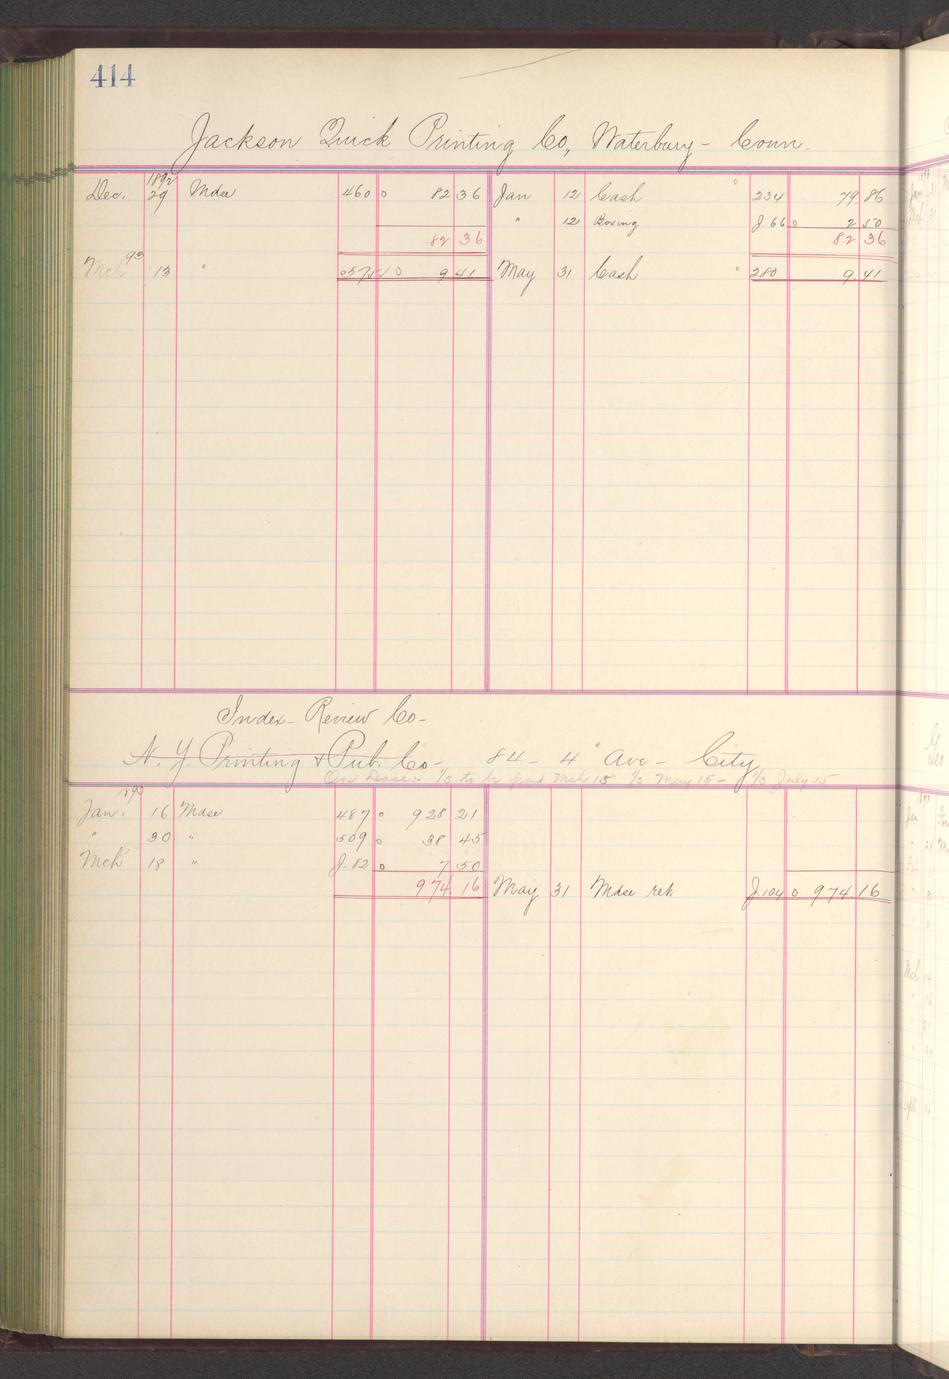 414
Jackson Quick Printing Co, Waterbury - Conn.
1892
Dec. 29 Mdse 460 0 82 36 Jan 12 Cash 234 79.86
" 12 Boxing J 66 0 2 50
82 36 82 36
93
Mch 13 " 0 9 41 May 31 Cash 280 9.41
Index- Review Co-
N. Y. Printing & Pub. Co- 84 - 4" Ave - City
On Lease:- 1/3 to be paid Mch 15 1/3 May 15 - 1/3 July 15
1893
Jan. 16 Mdse 487 0 928 21
" 30 " 509 0 38 45
Mch 18 " J. 82 0 7 50
974 16 May 31 Mdse ret J. 104 0 974 16